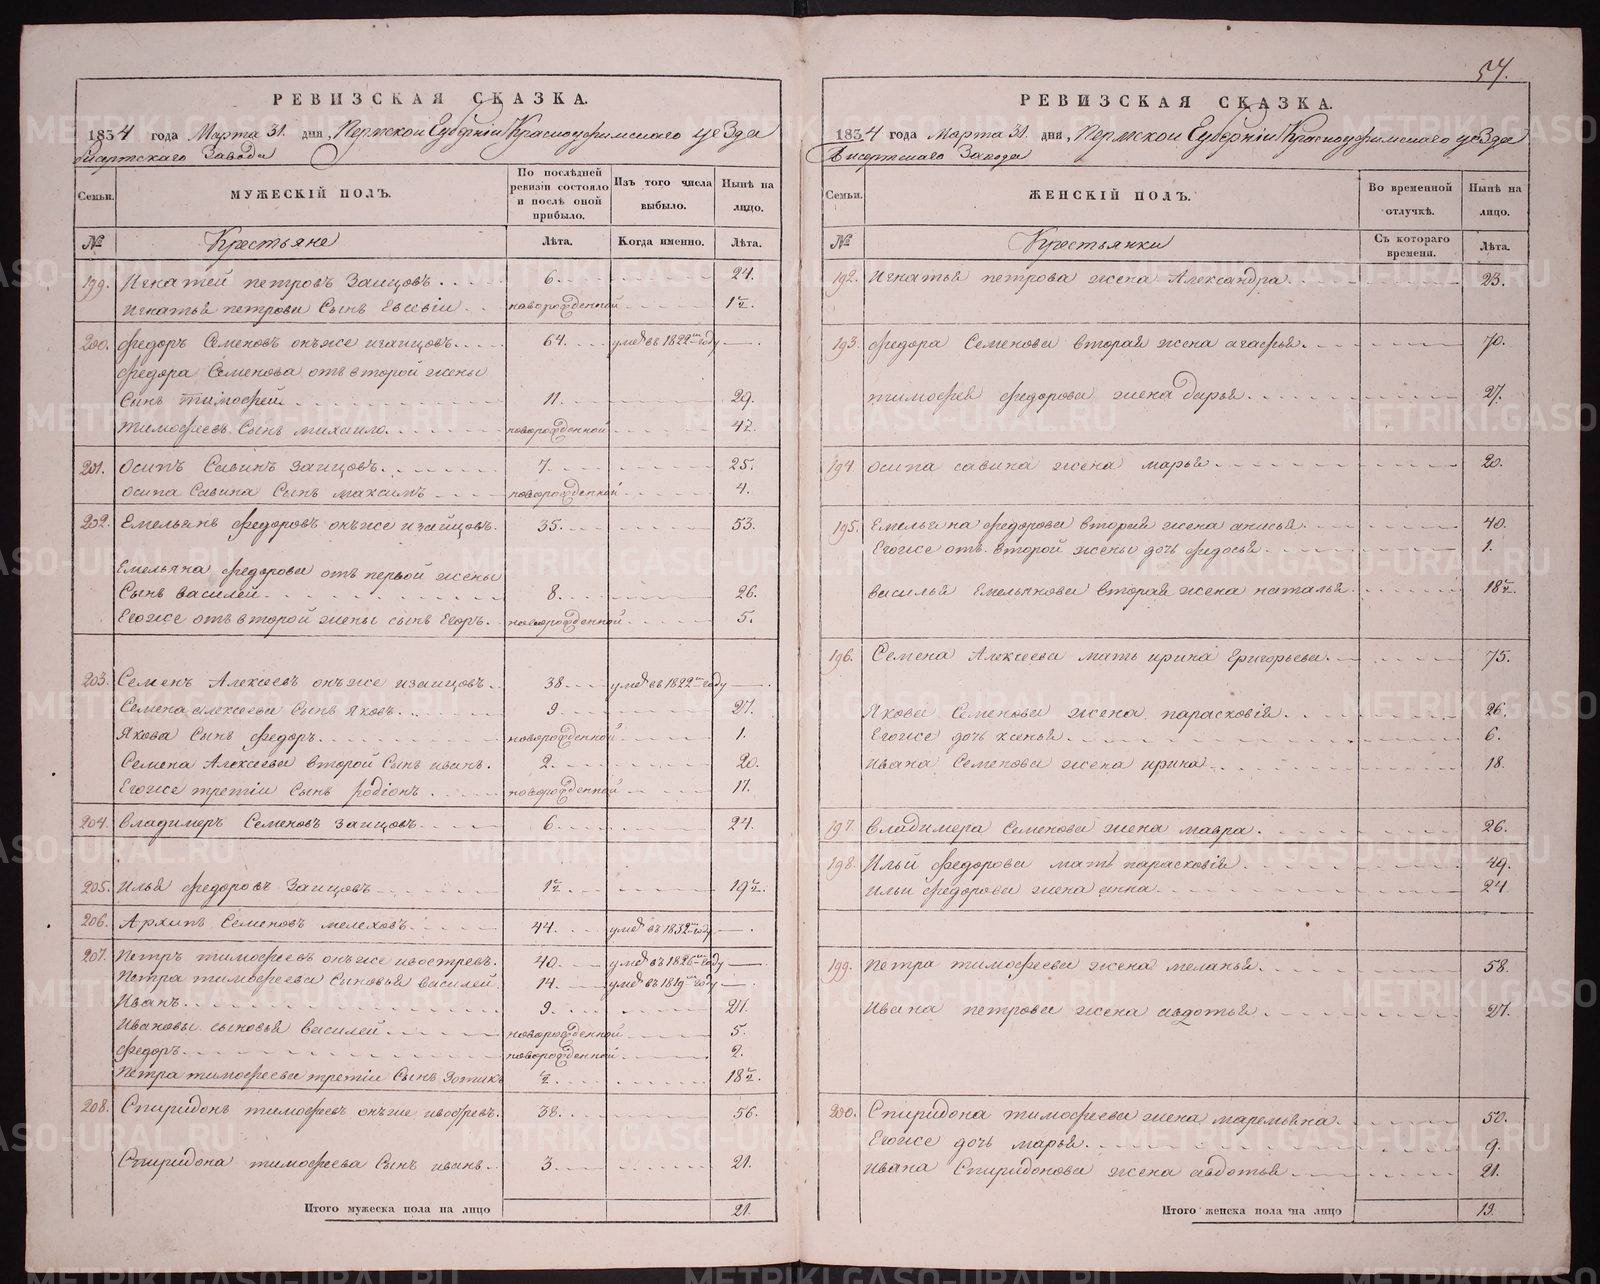 57.
РЕВИЗСКАЯ СКАЗКА.
1834 года Марта 31. дня, Пермской Губерніи Красноуфимскаго уезда
Бисертскаго Завода
Семьи.
МУЖЕСКІЙ ПОЛЪ.
По послѣдней ревизіи состояло и послѣ оной прибыло.
Изъ того числа выбыло.
Нынѣ на лицо.
№
Крестьяне
Лѣта.
Когда именно.
Лѣта.
199. Игнатей петровъ Заицовъ 6. 24.
Игнатья петрова Сынъ Евсевіи новорожденной 1½.
200. Федоръ Семеновъ онъже изаицовъ 64. умре въ 1822мъ году
Федора Семенова отъ второй жены
Сынъ тимофей 11. 29.
тимофеевъ Сынъ михаило новорожденной
201. Осипъ Савинъ Заицовъ 7. 25.
Осипа Савина Сынъ максимъ новорожденной 4.
202. Емельянъ федоровъ онъже изайцовъ. 35. 53.
Емельяна федорова отъ первой жены
Сынъ василей 8. 26.
Егоже отъ второй жены сынъ Егоръ. новорожденной 5.
203. Семенъ Алексеевъ онъже изаицовъ. 38. умре въ 1822мъ году
Семена алексеева Сынъ яковъ 9. 27.
Якова Сынъ федоръ новорожденной 1.
Семена Алексеева второй Сынъ иванъ. 2. 20.
Егоже третіи Сынъ родіонъ новорожденной 17.
204. Владимеръ Семеновъ заицовъ 6. 24.
205. Илья федоровъ Заицовъ 1½. 19½.
206. Архипъ Семеновъ мелеховъ 44. умре въ 1832мъ году
207. Петръ тимофеевъ онъже 40. умре въ 1826мъ году
Петра тимофеева Сыновья василей 14. умре въ 1819мъ году
Иванъ 9. 27.
Ивановы сыновья василей новорожденной 5.
федоръ новорожденной 2.
Петра тимофеева третіи Сынъ Зотикъ ½. 18½.
208. Спиридонъ тимофеевъ онъже 38. 56.
Спиридона тимофеева Сынъ иванъ 3. 21.
Итого мужеска пола на лицо 21.
РЕВИЗСКАЯ СКАЗКА.
1834 года Марта 31. дня, Пермской Губерніи Красноуфимскаго уезда
Бисертскаго Завода
Семьи.
ЖЕНСКІЙ ПОЛЪ.
Во временной отлучкѣ.
Нынѣ на лицо.
№
Крестьянки
Съ котораго времени.
Лѣта.
192. Игнатья петрова жена Александра 23.
193. Федора Семенова вторая жена агафья 70.
тимофея федорова жена дарья 27.
194. Осипа савина жена марья 20.
195. Емельяна федорова вторая жена анисья 40.
Егоже отъ второй жены дочь федосья 1.
василья Емельянова вторая жена наталья 18½.
196. Семена Алексеева мать ирина Григорьева. 75.
Якова Семенова жена парасковія 26.
Егоже дочь ксенья 6.
Ивана Семенова жена ирина 18.
197. Владимера Семенова жена мавра. 26.
198. Ильи федорова мать парасковія 49.
Ильи федорова жена анна 24
199. Петра тимофеева жена меланья 58.
Ивана петрова жена авдотья 27.
200. Спиридона тимофеева жена маремьяна 50.
Егоже дочь марья 9.
Ивана Спиридонова жена авдотья 21.
Итого женска пола на лицо 19.
METRIKI.GASO-URAL.RU